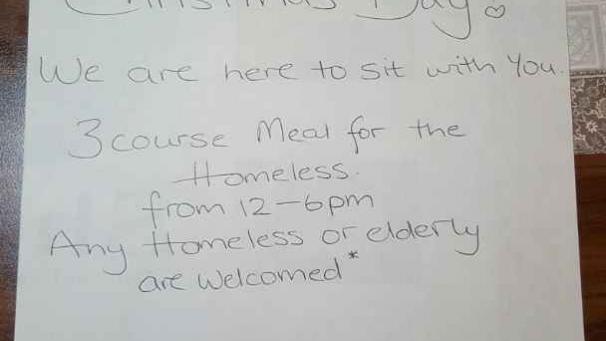 Christmas Day ♡
We are here to sit with You.
3 course Meal for the
Homeless.
from 12-6pm
Any Homeless or elderly
are welcomed*